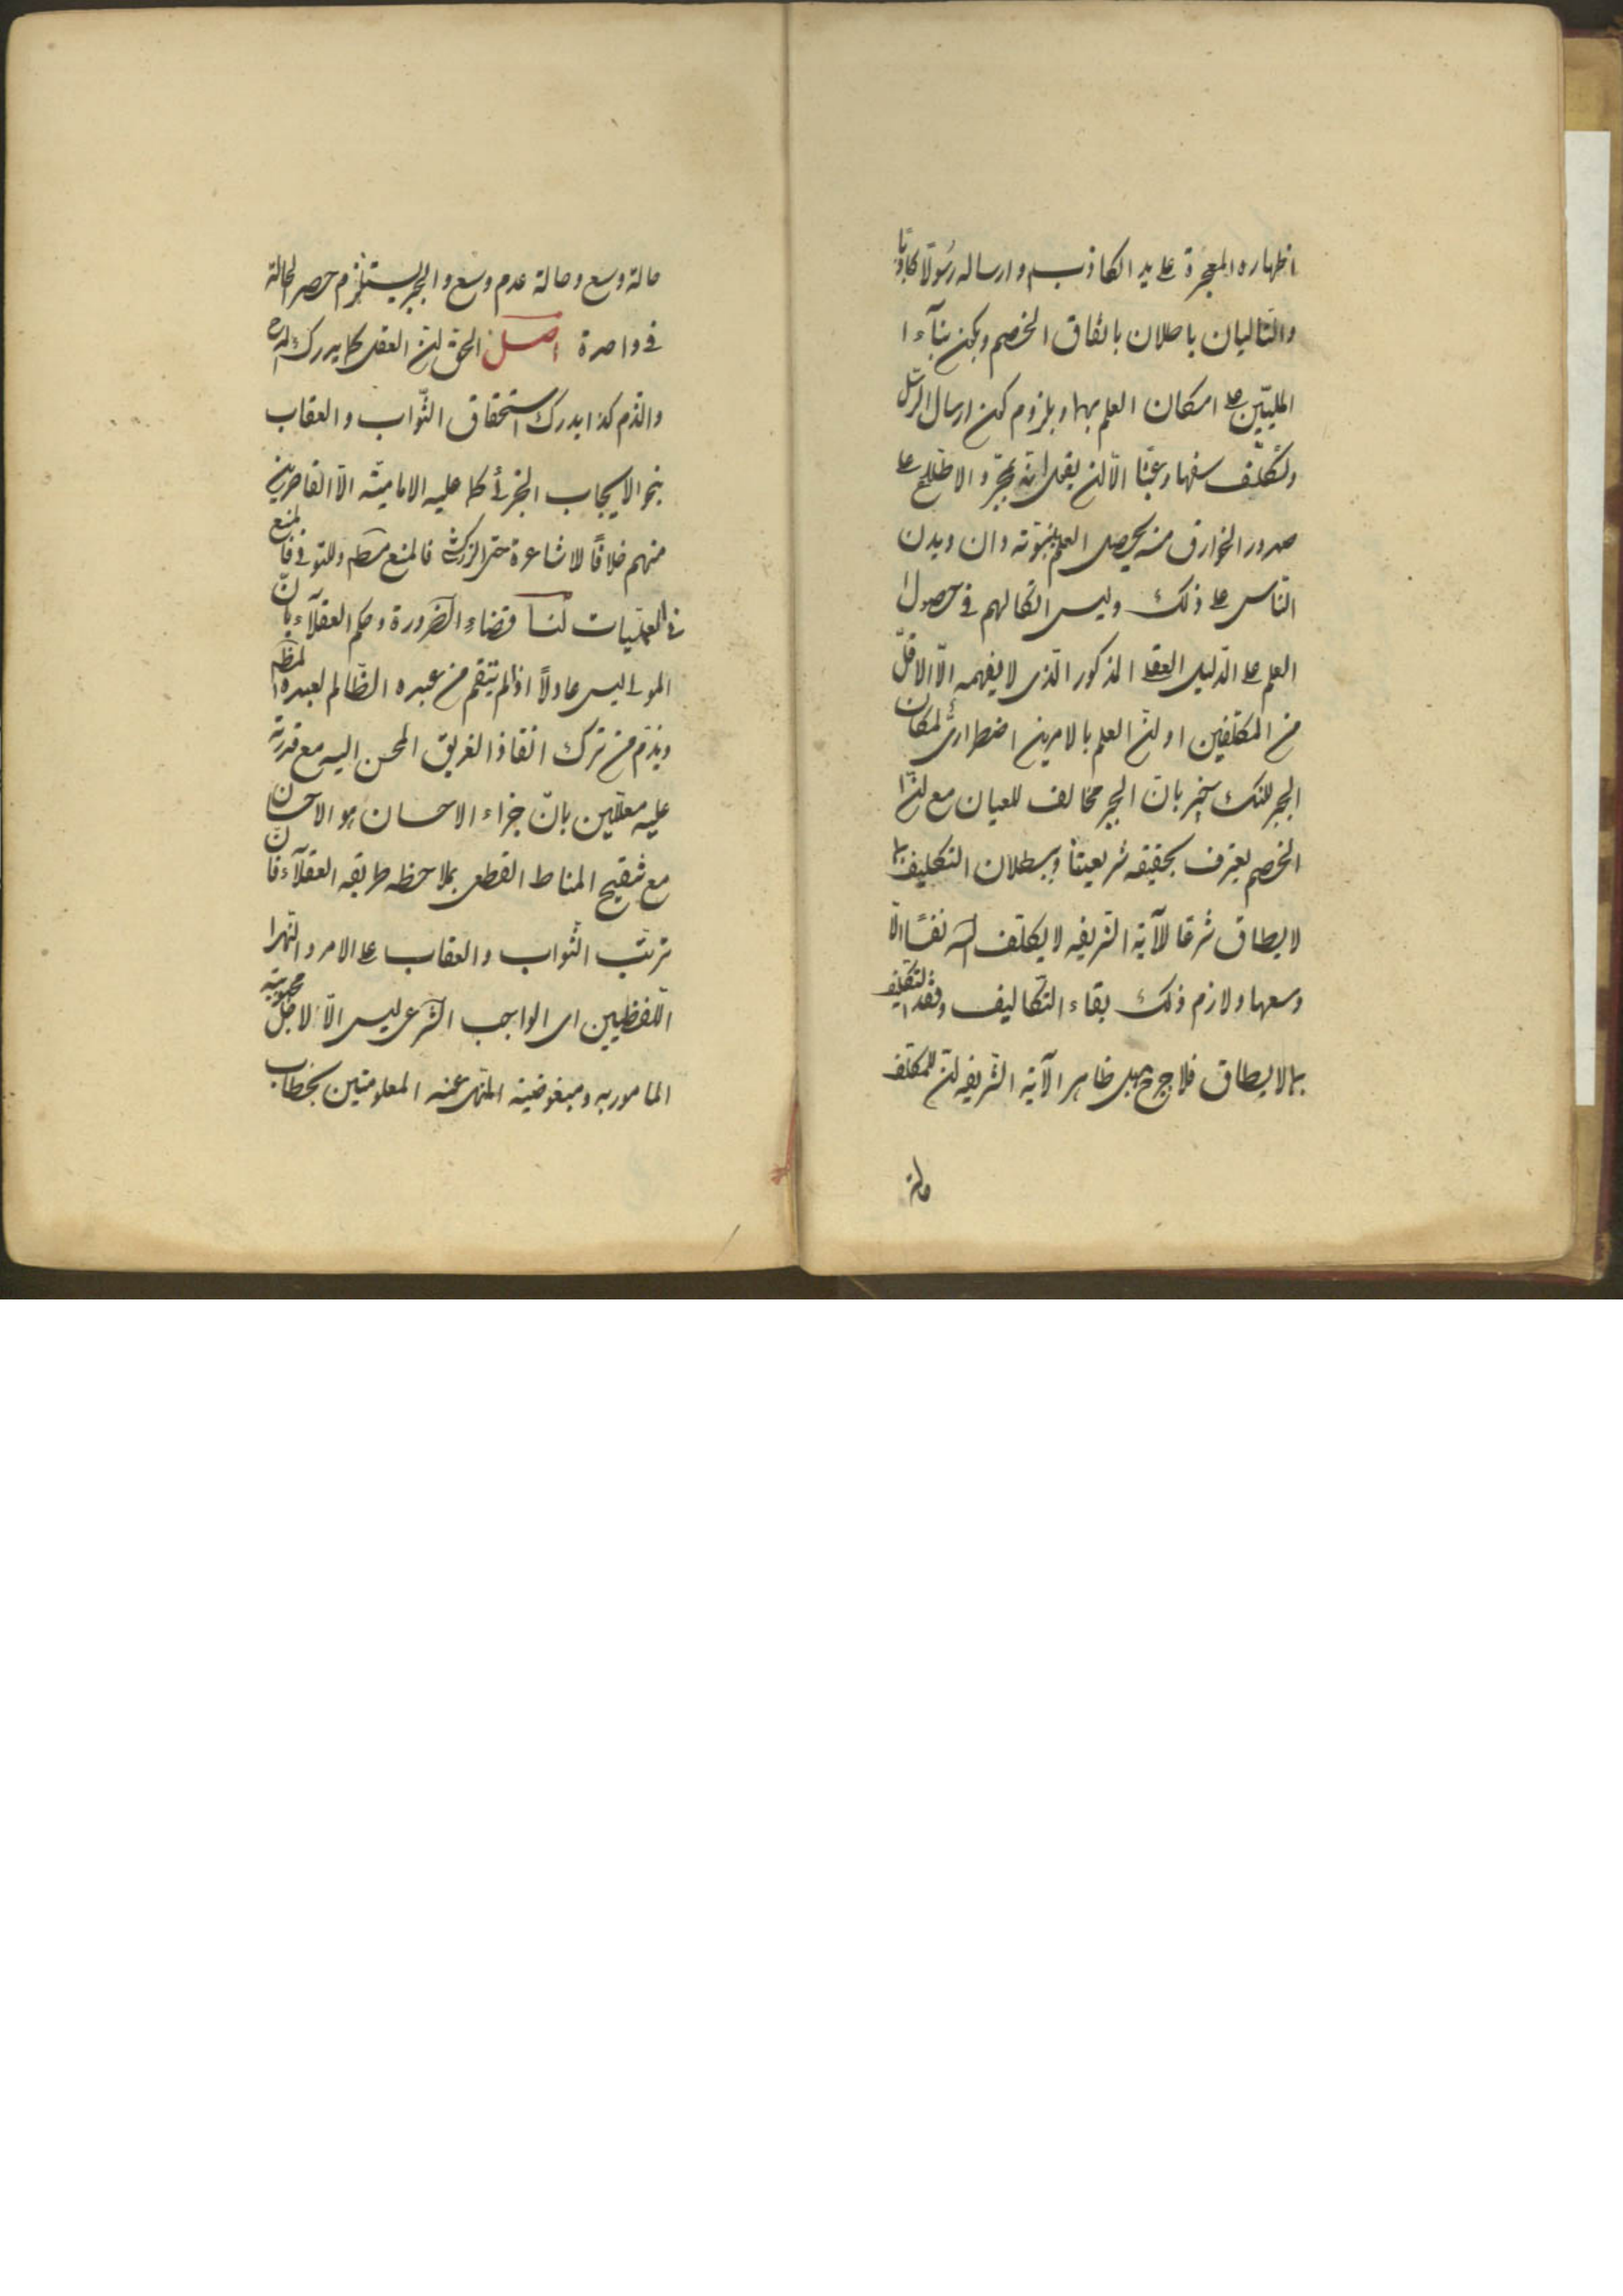 اظهاره المعجزة على يد الكاذب وارساله رسولا كاذبا
والتاليان باطلان باتفاق الخصم ويمكن بناء ا
المليّين على امكان العلم بها وبلزوم كون ارسال الرسل
وتكلّف سفها وعبثا الّا ان يقال انه بمجرّد الاطلاع على
صدور الخوارق منه يحصل العلم بنبوته وان ديدن
الناس على ذلك وليس اتكالهم في حصول
العلم على الدليل العقلي المذكور الذى لا يفهمه الّا الاقلّ
من المكلفين او لانّ العلم بالامرين اضطرارىّ لمكان
الجبر لكنك خبير بانّ الجبر مخالف للعيان مع انّ
الخصم يعترف بحقيقه شريعتنا وببطلان التكليف بما
لا يطاق شرعا للآية الشريفه لا يكلّف الله نفسًا الّا
وسعها ولازم ذلك بقاء التكاليف وفقد التكليف
بما لا يطاق فلا ظاهر الآية الشريفه انّ للمكلف
حالة
حالة وسع وحالة عدم وسع والجبر يستلزم حصر الحالة
في واحدة اصل الحق ان العقل كما يدرك المدح
والذم كذا يدرك استحقاق الثّواب والعقاب
بنحو الايجاب الجزئى كما عليه الاماميّة الّا القاصرين
منهم خلافًا للاشاعرة حتى الزركشى فالمنع مطم وللتونى فالمنع
في العمليات لنا قضاء الضرورة وحكم العقلاء بانّ
المولى ليس عادلًا اذا لم ينتقم من عبده الظّالم لعبده المظلم
ويذمّ من ترك انقاذ الغريق المحسن اليه مع قدرته
عليه معلّلين بانّ جزاء الاحسان هو الاحسان
مع تنقيح المناط القطعى بملاحظه طريقه العقلاء فانّ
ترتّب الثّواب والعقاب على الامر والنهى ا
اللّفظيين اى الواجب الشرعى ليس الّا لاجل محبوبيّة
المامور به ومبغوضية المنهى عنه المعلومتين بخطاب